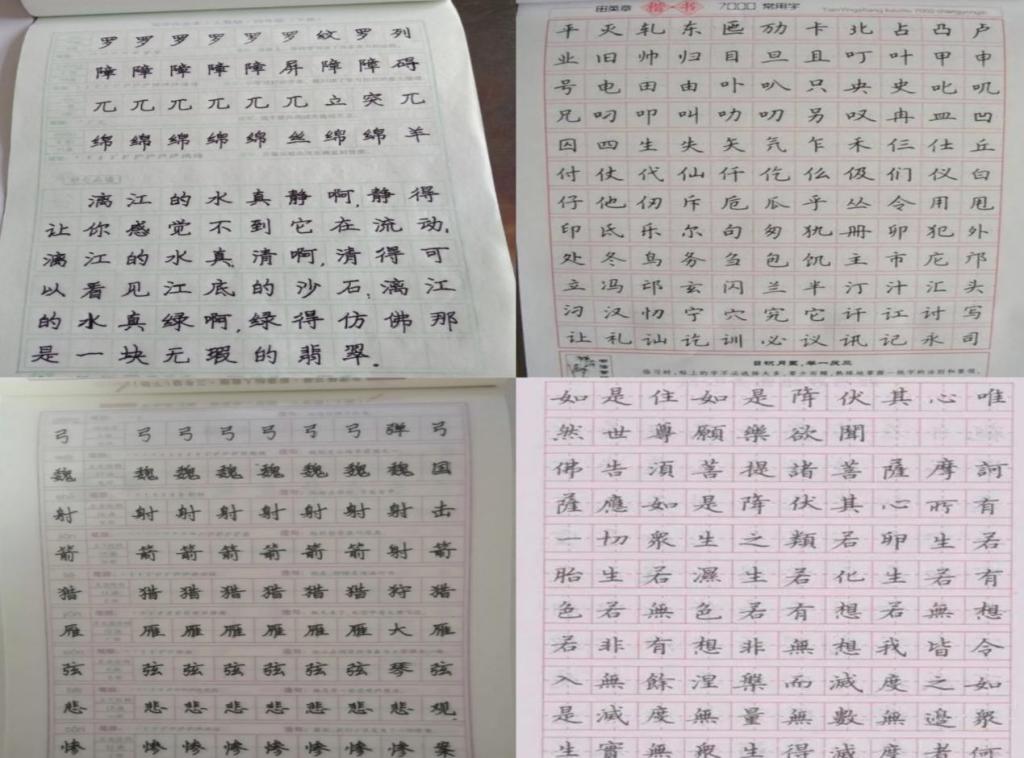 罗罗罗罗罗罗纹罗列
障障障障障屏障障碍
兀兀兀兀兀兀立突兀
绵绵绵绵绵丝绵绵羊
漓江的水真静啊,静得
让你感觉不到它在流动,
漓江的水真清啊,清得可
以看见江底的沙石,漓江
的水真绿啊,绿得仿佛那
是一块无瑕的翡翠.
田英章 楷·书 7000 常用字
平灭轧东匝劢卡北占凸卢
业旧帅归目旦且叮叶甲申
号电田由卟叭只央史叱叽
兄叼叩叫叻叨另叹冉皿凹
囚四生失矢气乍禾仨仕丘
付仗代仙仟仡仫伋们仪白
仔他仞斥卮瓜乎丛令用甩
印氐乐尔句匆犰册卯犯外
处冬鸟务刍包饥主市庀邝
立冯邙玄闪兰半汀汁汇头
汈汉忉宁穴宄它讦讧讨写
让礼讪讫训必议讯记永司
弓弓弓弓弓弓弓弹弓
魏魏魏魏魏魏魏魏国
射射射射射射射射击
箭箭箭箭箭箭箭射箭
猎猎猎猎猎猎猎狩猎
雁雁雁雁雁雁雁大雁
弦弦弦弦弦弦弦琴弦
悲悲悲悲悲悲悲悲观
惨惨惨惨惨惨惨惨案
如是住如是降伏其心唯
然世尊願樂欲聞
佛告湏菩提諸菩薩摩訶
薩應如是降伏其心所有
一切衆生之類若卵生若
胎生若濕生若化生若有
色若無色若有想若無想
若非有想非無想我皆令
入無餘涅槃而滅度之如
是滅度無量無數無邊衆
生實無衆生得滅度者何